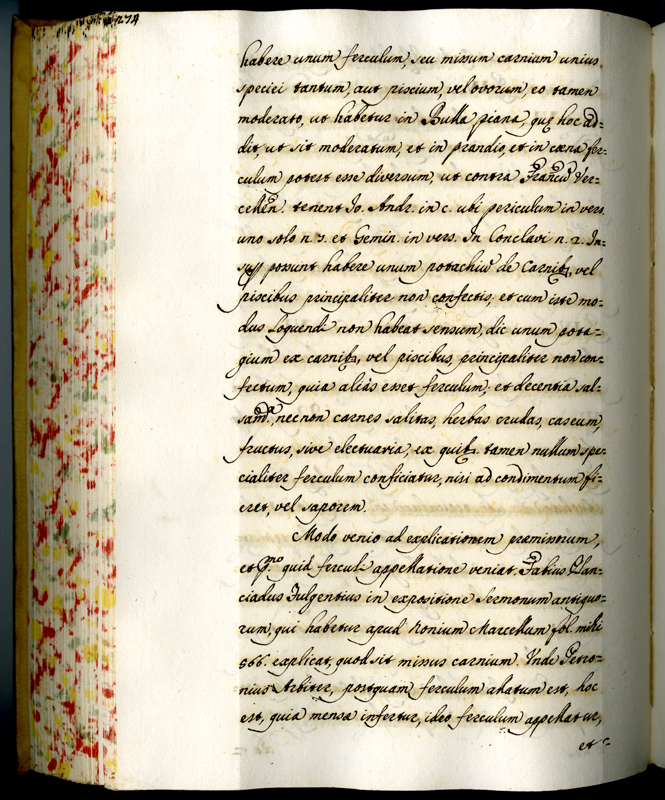 274
habere unum ferculum, seu missum carnium unius
speciei tantum, aut piscium, vel ovorum, eo tamen
moderato, ut habetur in Bulla piana, quę hoc ad=
dit, ut sit moderatum, et in prandio, et in cæna fer=
culum potest esse diversum, ut contra Francũ Ver=
cellen. tenent Io. Andr. in c. ubi periculum in vers.
uno solo n. 7. et Gemin. in vers. In Conclavi n. 2. In=
sup possunt habere unum potachiũ de Carnib, vel
piscibus principaliter non confectis, et cum iste mo=
dus loquendi non habeat sensum, dic unum pota=
gium ex carnib, vel piscibus principaliter non con=
fectum, quia aliàs esset ferculum, et decentia sal=
samta, nec non carnes salitas, herbas crudas, caseum,
fructus, sive electuaria, ex quib. tamen nullum spe=
cialiter ferculum conficiatur, nisi ad condimentum fi=
eret, vel saporem.
Modo venio ad explicationem præmissorum,
et Pmo quid ferculi appellatione veniat. Fabius Plan=
ciadus Fulgentius in expositione sermonum antiquo=
rum, qui habetur apud Nonium Marcellum fol. mihi
566. explicat, quod sit missus carnium. Unde Petro=
nius Arbiter, postquam ferculum allatum est, hoc
est, quia mensæ infertur, ideo ferculum appellatur,
et